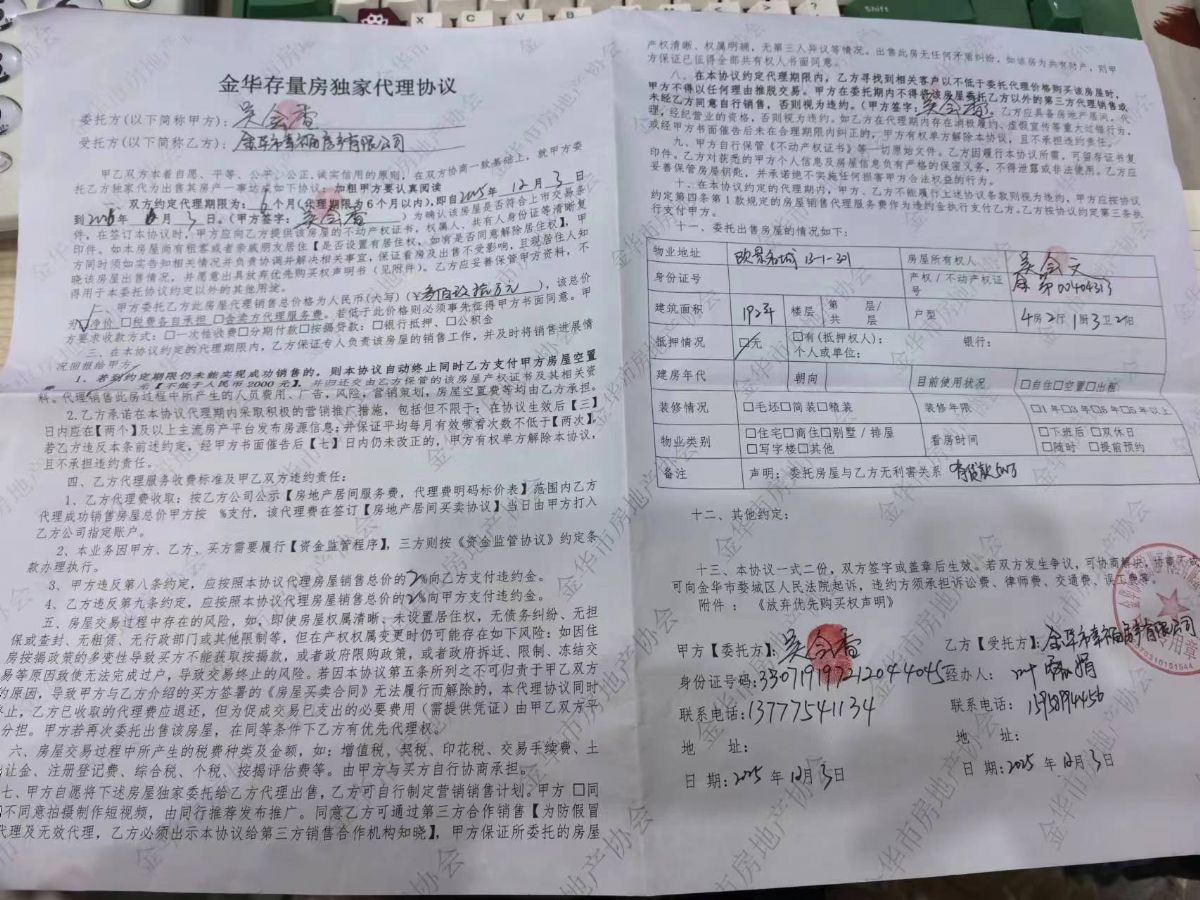 金华存量房独家代理协议
委托方(以下简称甲方):吴会香
受托方(以下简称乙方):金华市幸福房产有限公司
甲乙双方本着自愿、平等、公平、公正、诚实信用的原则,在双方协商一致基础上,就甲方委
托乙方独家代为出售其房产一事达成如下协议:加粗甲方要认真阅读
双方约定代理期限为:6个月(代理期限为6个月以内),即自2025年12月3日
到2026年6月3日。(甲方签字:吴会香)为确认该房屋是否符合上市交易条
件,在签订本协议时,甲方应向乙方提供该房屋的不动产权证书,权属人、共有人身份证等清晰复
印件。如本房屋尚有租客或者亲戚朋友居住【是否设置有居住权,如有是否同意解除居住权】,甲
方同时须如实告知相关情况并负责协调并解决相关事宜,保证看房及出售不受影响,且现居住人知
晓该房屋出售情况,并愿意出具放弃优先购买权声明书(见附件)。乙方应妥善保管甲方资料,不
得用于本委托协议约定以外的其他用途。
二、甲方委托乙方此房屋代理销售总价格为人民币(大写)(¥叁百玖拾万元),该总价
为☑净价 □税费各自承担 □含卖方代理服务费。若低于此价格则必须事先征得甲方书面同意。甲
方要求收款方式:□一次性收费□分期付款□按揭贷款:□银行抵押、□公积金
三、在本协议约定的代理期限内,乙方保证专人负责该房屋的销售工作,并及时将销售进展情
况回报给甲方
1、若到约定期限仍未能实现成功销售的,则本协议自动终止同时乙方支付甲方房屋空置
费 元【不低于人民币2000元】,并归还交由乙方保管的该房屋产权证书及其相关资
料。代理销售此房过程中所产生的人员费用、广告,风险,营销策划,房屋空置费等均由乙方承担。
2.乙方承诺在本协议代理期内采取积极的营销推广措施,包括但不限于:在协议生效后【三】
日内应在【两个】及以上主流房产平台发布房源信息;并保证平均每月有效带看次数不低于【两次】。
若乙方违反本条前述约定,经甲方书面催告后【七】日内仍未改正的,甲方有权单方解除本协议,
且不承担违约责任。
四、乙方代理服务收费标准及甲乙双方违约责任:
1、乙方代理费收取:按乙方公司公示【房地产居间服务费,代理费明码标价表】范围内乙方
代理成功销售房屋总价甲方按 %支付,该代理费在签订【房地产居间买卖协议】当日由甲方打入
乙方公司指定账户。
2、本业务因甲方、乙方、买方需要履行【资金监管程序】,三方则按《资金监管协议》约定条
款办理执行。
3、甲方违反第八条约定,应按照本协议代理房屋销售总价的2%向乙方支付违约金。
4、乙方违反第九条约定,应按照本协议代理房屋销售总价的2%向甲方支付违约金。
五、房屋交易过程中存在的风险,如,即使房屋权属清晰、未设置居住权,无债务纠纷、无担
保或查封、无租赁、无行政部门或其他限制等,但在产权权属变更时仍可能存在如下风险:如因住
房按揭政策的多变性导致买方不能获取按揭款,或者政府限购政策,或者政府拆迁、限制、冻结交
易等原因致使无法完成过户,导致交易终止的风险。若因本协议第五条所列之不可归责于甲乙双方
的原因,导致甲方与乙方介绍的买方签署的《房屋买卖合同》无法履行而解除的,本代理协议同时
终止,乙方已收取的代理费应退还,但为促成交易已支出的必要费用(需提供凭证)由甲乙双方平
分担。甲方若再次委托出售该房屋,在同等条件下乙方有优先代理权。
六、房屋交易过程中所产生的税费种类及金额,如:增值税、契税、印花税、交易手续费、土
让金、注册登记费、综合税、个税、按揭评估费等。由甲方与买方自行协商承担。
七、甲方自愿将下述房屋独家委托给乙方代理出售,乙方可自行制定营销销售计划。甲方 □同
不同意拍摄制作短视频,由同行推荐发布推广。同意乙方可通过第三方合作销售【为防假冒
代理及无效代理,乙方必须出示本协议给第三方销售合作机构知晓】,甲方保证所委托的房屋
产权清晰、权属明确,无第三人异议等情况。出售此房无任何矛盾纠纷,如该房为共有财产,则甲
方保证已征得全部共有权人书面同意。
八、在本协议约定代理期限内,乙方寻找到相关客户以不低于委托代理价格购买该房屋时,
甲方不得以任何理由推脱交易。甲方在委托期内不得将该房屋委托乙方以外的第三方代理销售或
未经乙方同意自行销售,否则视为违约。(甲方签字:吴会香)乙方应具备房地产居间、代
理,经纪营业的资格,否则视为违约。如乙方在代理期内存在消极履约、虚假宣传等重大过错行为,
或经甲方书面催告后未在合理期限内纠正的,甲方有权单方解除本协议,且不承担违约责任。
九、甲方自行保管《不动产权证书》等一切原始文件。乙方因履行本协议所需,可留存证书复
印件。乙方对获悉的甲方个人信息及房屋信息负有严格的保密义务,不得泄露或非法使用。乙方应
妥善保管房屋钥匙,并承诺绝不实施任何损害甲方合法权益的行为。
十、在本协议约定的代理期内,甲方、乙方不能履行上述协议条款则视为违约,甲方应按协议
约定第四条第1款规定的房屋销售代理服务费作为违约金执行支付乙方。乙方按协议约定第三条执
行支付甲方。
十一、委托出售房屋的情况如下:
物业地址 欧景名城 13-1-301 房屋所有权人 吴会文
身份证号 产权/不动产权证号 金第00404313
建筑面积 192平 楼层 第 层/共 层 户型 4房2厅1厨3卫2阳
抵押情况 ☑无 □有(抵押权人): 银行:
个人或单位:
建房年代 朝向 目前使用状况 □自住□空置□出租
装修情况 □毛坯□简装□精装 装修年限 □1年□3年□5年□5年以上
物业类别 □住宅□商住□别墅/排屋 □写字楼□其他 看房时间 □下班后 □双休日 □随时 □提前预约
备注 声明:委托房屋与乙方无利害关系 有贷款
十二、其他约定:
十三、本协议一式二份,双方签字或盖章后生效。若双方发生争议,可协商解决,协商不成
可向金华市婺城区人民法院起诉,违约方须承担诉讼费、律师费、交通费、误工费等。
附件:《放弃优先购买权声明》
甲方【委托方】:吴会香
乙方【受托方】:金华市幸福房产有限公司
身份证号码:330719197212044045
经办人:叶淑娟
联系电话:13777541134
联系电话:15958944456
地 址:
地 址:
日期:2025年12月3日
日期:2025年12月3日
金华市房地产协会